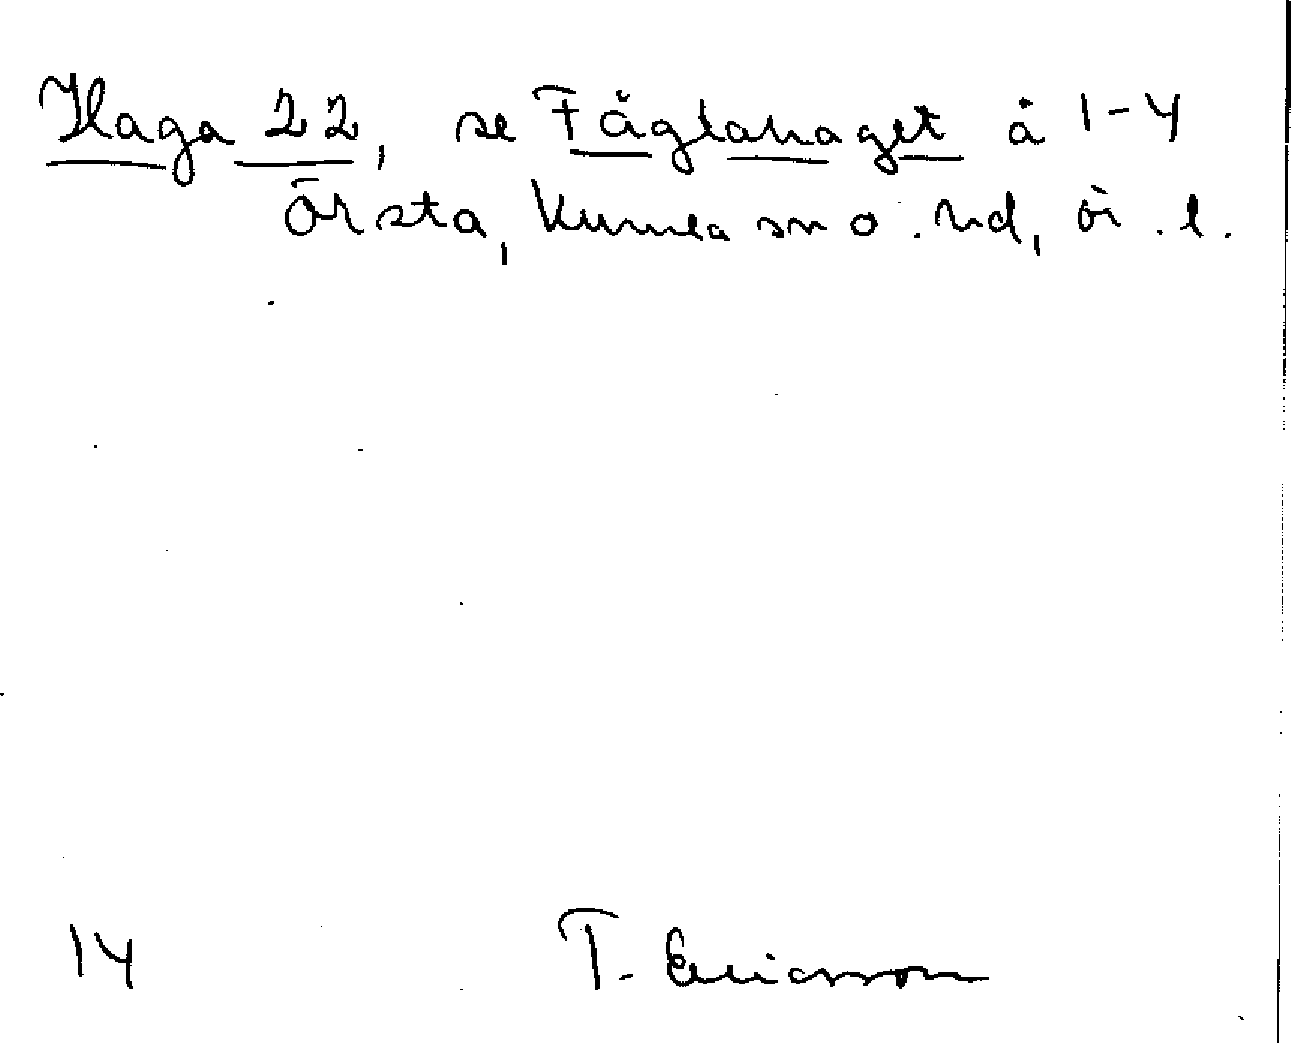 Haga 22, se Fåglahaget å 1-4
Örsta, Kumla sn o. hd, ör. l.
14 T. Ericsson